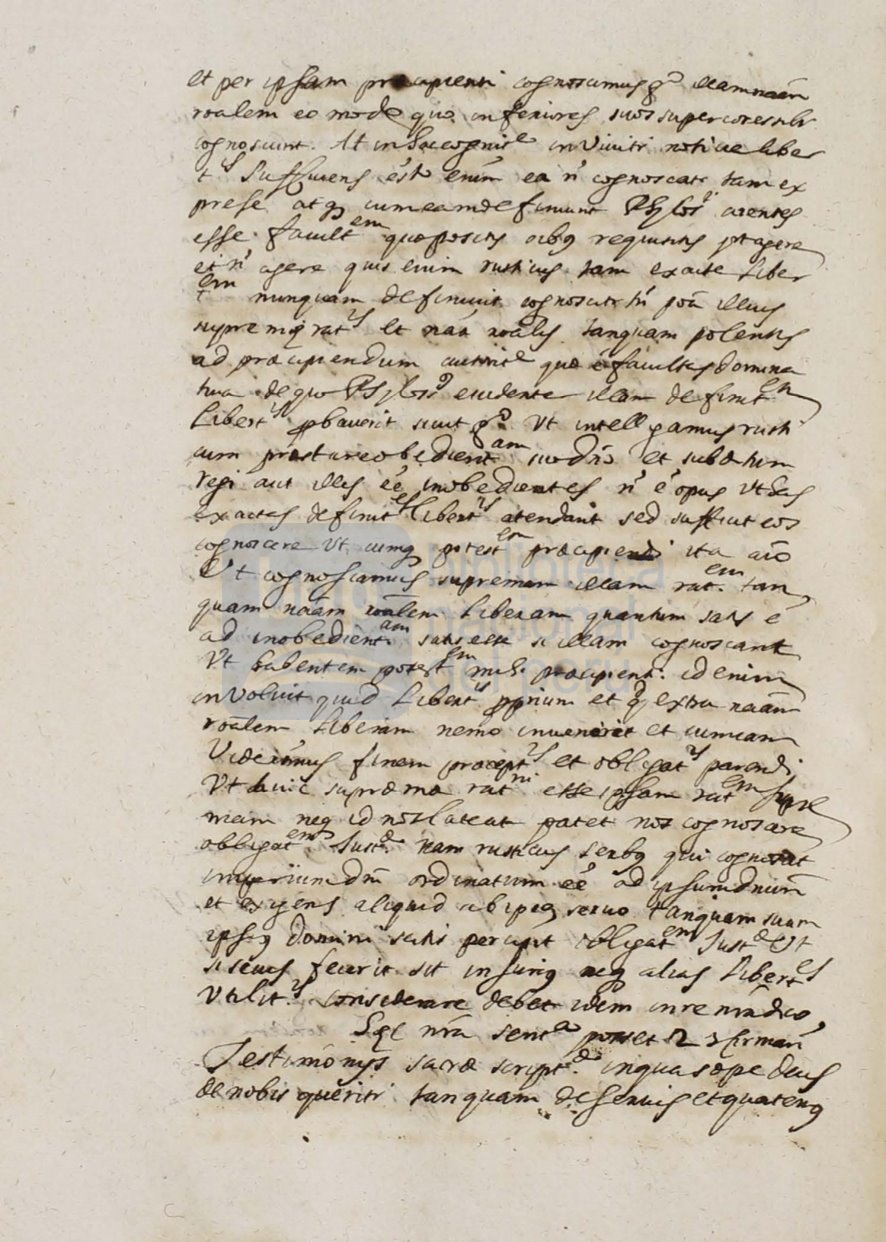 et per ipsam præcipienti cognoscimus illam naām
roālem eo modo quo inferiores suos superiores
cognoscunt. At in hac cognit.e invluitr notitiæ liber
t.is sufficiens est enim ea n' cognoscatr tam ex
prese atq cum eam definiunt Phylos.i aientes
esse facult.em quæ positis oībq requisitis pōt agere
et n' agere quis enim rusticus tam exacte liber
t.em nunquam definivit cognoscitr illius
supremi rat.is et naā roālis tanquam potentis
ad præcipiendum quæ ē facultas domina
tiva de quo Phylos. evidenter illam definit.em
libert.is probaverit sicut Ut intelligamus rusti
cum præstare obedient.am suo dnō et subditum
regi aut illis eē inobedientes n' ē opus ut has
exactas definit.es libert.is atendant sed sufficit eos
cognoscere ut cumq potest.em præcipiendi ita aio
Ut cognoscamus supremam illam rat.em tan
quam naām roālem liberam quantum satis ē
ad inobedient.am satis esse si illam cognoscant
Ut habentem potest.em mihi præcipient. id enim
involvit quid libert.is proprium et q extra naām
roālem liberam nemo invenerit et cum eam
Videāmus finem præcept.is et obligat.is parendi
Ut huic supræmæ rat.ni esse ipsam rat.em supre
mam neq id nos lateat patet nos cognoscere
obligat.em Just.æ nam rusticus serbq qui cognoscat
imperium dnī ordinatum eē ad ipsum dnum
et exigens aliquid ab ipso servo tanquam suum
ipsiq domini satis percipit obligat.em Just.æ Ut
si secus fecerit sit injuriq neq alias libert.is
Utilit.is considerare debet idem in re nrā dico
Hæc nrā sent.a potset 2 confirmari
Testimonijs sacræ script.æ in qua sæpe deus
de nobis queritr tanquam de servis et quatenq